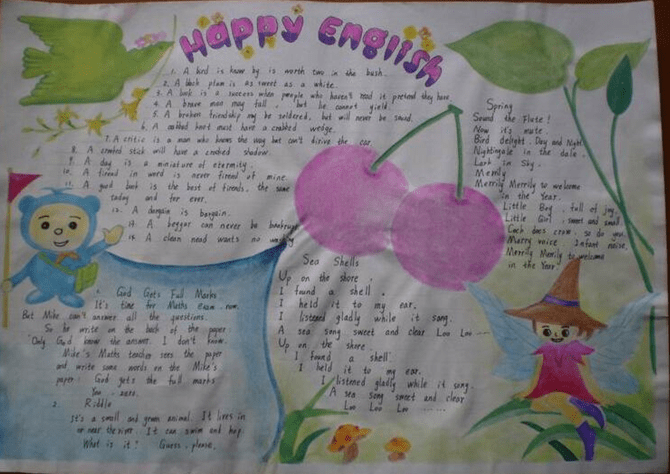 Happy English
1. A bird is know by is worth two in the bush.
2. A black plum is as sweet as a white.
3. A book is a success when people who haven't read it pretend they have.
4. A brave man may fall, but he cannot yield.
5. A broken friendship may be soldered, but will never be sound.
6. A crabbed knot must have a crabbed wedge.
7. A critic is a man who knows the way but can't drive the car.
8. A crooked stick will have a crooked shadow.
9. A day is a miniature of eternity.
10. A friend in word is never friend of mine.
11. A good book is the best of friends, the same
today and for ever.
12. A bargain is bargain.
13. A beggar can never be bankrupt
14. A clean hand wants no washing
1. God Gets Full Marks
It's time for Maths exam now.
But Mike can't answer all the questions.
So he write on the back of the paper
"Only God know the answer. I don't know.
Mike's Maths teacher sees the paper
and write some words on the Mike's
paper: God gets the full marks
You - zero.
2. Riddle
It's a small and green animal. It lives in
or near the river. It can swim and hop.
What is it? Guess, please.
Sea Shells
Up on the shore,
I found a shell.
I held it to my ear.
I listened gladly while it song.
A sea song sweet and clear Loo Loo ---
Up on the shore
I found a shell
I held it to my ear.
I listened gladly while it song.
A sea song sweet and clear
Loo Loo Loo ......
Spring
Sound the Flute!
Now it's mute.
Bird delight, Day and Night
Nightingale in the dale.
Lark in Sky.
Merrily
Merrily Merrily to welcome
in the Year.
Little Boy, full of joy,
Little Girl sweet and small
Cock does crow, so do you,
Merry voice, Infant noise.
Merrily Merrily to welcome
in the Year.